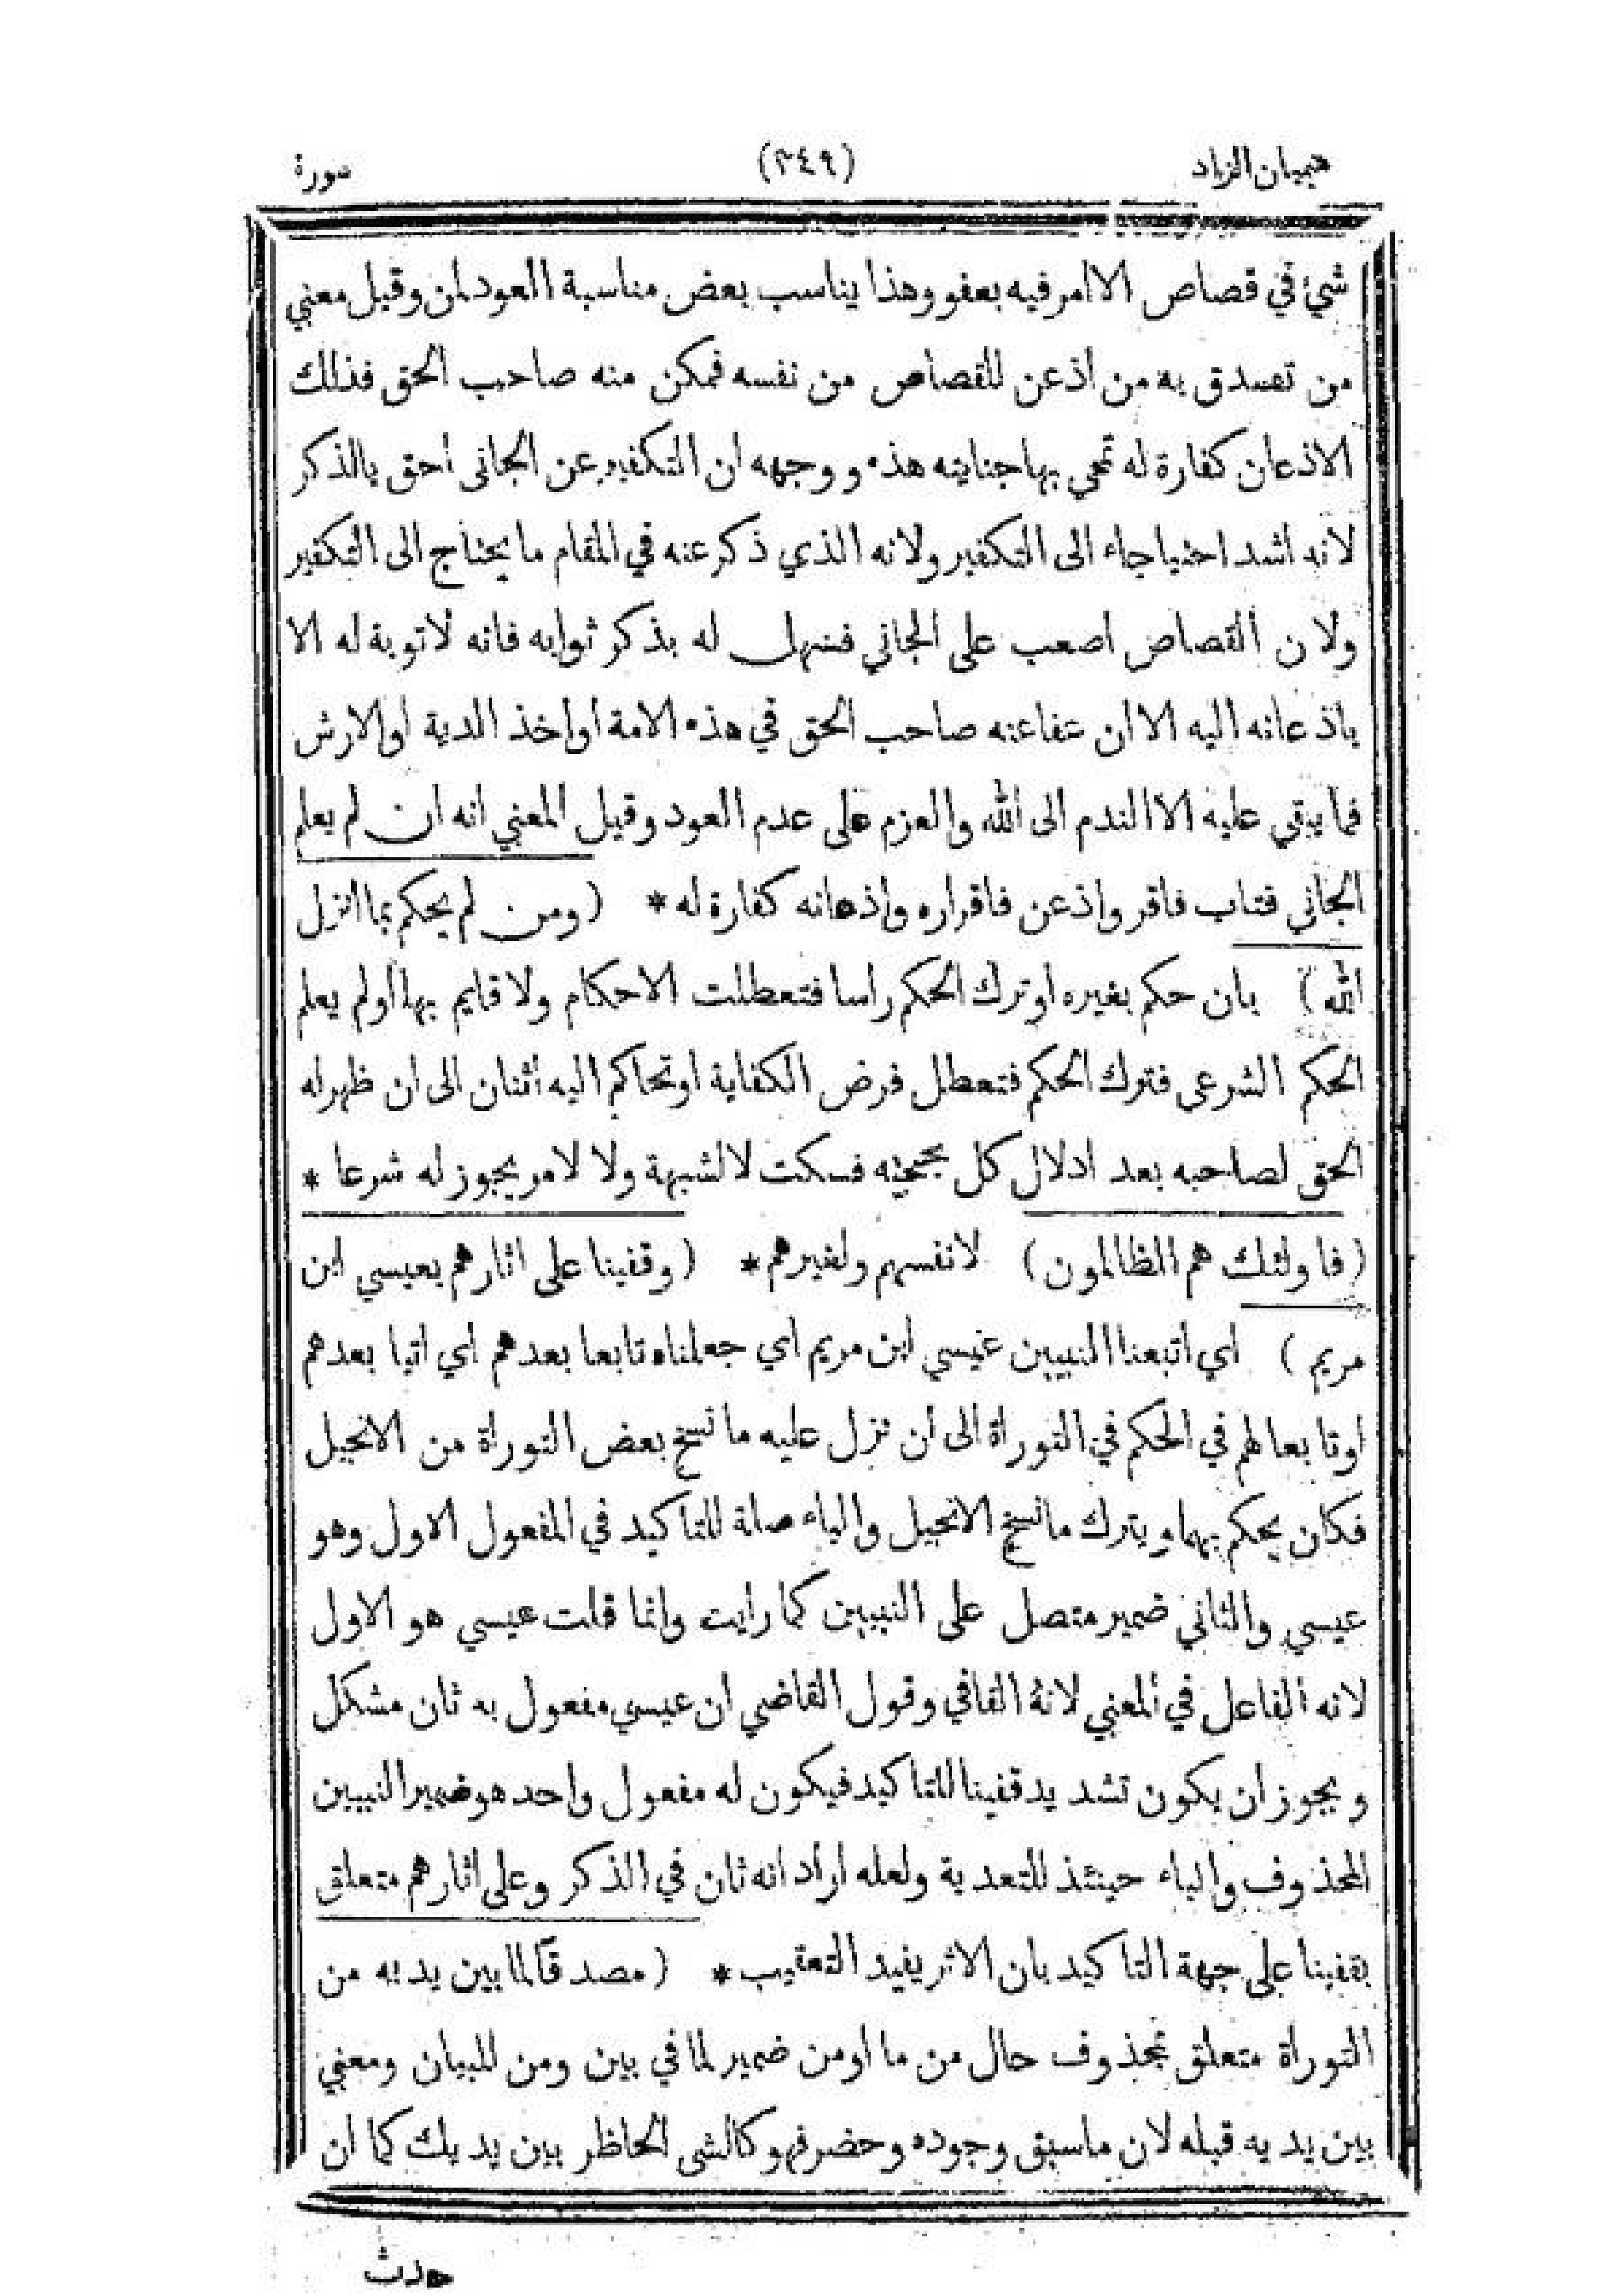 هيميان الزاد (٣٤٩) سورة
شيء في قصاص الا امر فيه بعفو وهذا يناسب بعض مناسبة العود لمن وقيل معني
من تصدق به من اذعن للقصاص من نفسه فمكن منه صاحب الحق فذلك
الاذعان كفارة له تمحي بها جنايته هذه ووجهه ان التكفير عن الجانى احق بالذكر
لانه اشد احتياجاء الى التكفير ولانه الذي ذكر عنه في المقام ما يحتاج الى التكفير
ولان القصاص اصعب على الجاني فسهل له بذكر ثوابه فانه لا توبة له الا
باذعانه اليه الا ان عفا عنه صاحب الحق في هذه الامة او اخذ الدية او الارش
فما يبقي عليه الا الندم الى الله والعزم على عدم العود وقيل المعني انه ان لم يعلم
الجاني فتاب فاقر واذعن فاقراره واذعانه كفارة له * (ومن لم يحكم بما انزل
الله) بان حكم بغيره او ترك الحكم راسا فتعطلت الاحكام ولا قايم بها او لم يعلم
الحكم الشرعى فترك الحكم فتعطل فرض الكفاية او تحاكم اليه اثنان الى ان ظهر له
الحق لصاحبه بعد ادلال كل بحجته فسكت لا لشبهة ولا لامر يجوز له شرعا *
(فاولئك هم الظالمون) لانفسهم ولغيرهم * (وقفينا على اثارهم بعيسي ابن
مريم) اي اتبعنا النبيين عيسي ابن مريم اي جعلناه تابعا بعدهم اي اتيا بعدهم
او تابعا لهم في الحكم في التوراة الى ان نزل عليه ما نسخ بعض التوراة من الانجيل
فكان يحكم بهما ويترك ما نسخ الانجيل والباء صلة للتاكيد في المفعول الاول وهو
عيسي والثاني ضمير متصل على النبيين كما رايت وانما قلت عيسي هو الاول
لانه الفاعل في المعني لانه القافي وقول القاضي ان عيسي مفعول به ثان مشكل
ويجوز ان يكون تشديد قفينا للتاكيد فيكون له مفعول واحد هو ضمير النبيين
المحذوف والباء حينئذ للتعدية ولعله اراد انه ثان في الذكر وعلى اثارهم متعلق
بقفينا على جهة التاكيد بان الاثر يفيد التعقيب * (مصدقا لما بين يديه من
التوراة متعلق بمحذوف حال من ما او من ضمير لما في بين ومن للبيان ومعني
بين يديه قبله لان ما سبق وجوده وحضر فهو كالشى الحاظر بين يديك كما ان
حدث